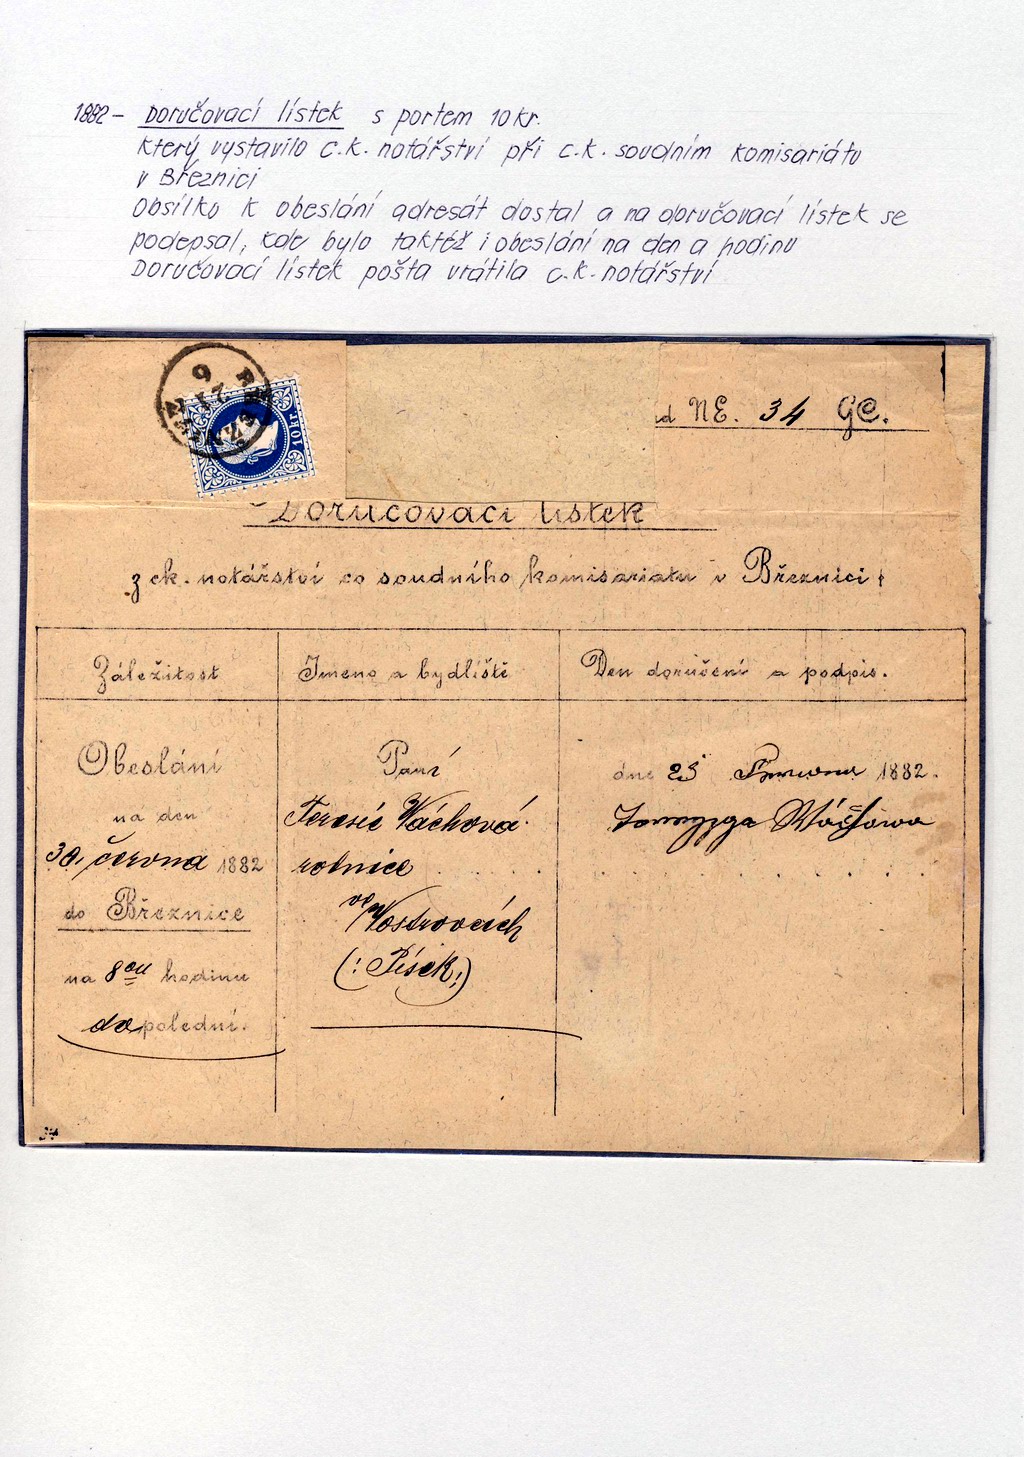 1882 - Doručovací lístek s portem 10 kr.
který vystavilo c.k. notářství při c.k. soudním komisariátu
v Březnici
Obsílku k obeslání adresát dostal a na doručovací lístek se
podepsal, kde bylo taktéž i obeslání na den a hodinu
Doručovací lístek pošta vrátila c.k. notářství
10 kr.
NE. 34 GC.
Doručovací lístek
z ck. notářství co soudního komisariatu v Březnici
Záležitost
Jmeno a bydliště
Den doručení a podpis.
Obeslání
na den
30. června 1882
do Březnice
na 8ou hodinu
dopolední.
Paní
Teresie Váchová
rolnice
ve Vostrovcích
(: Písek :)
dne 25 1882.
34